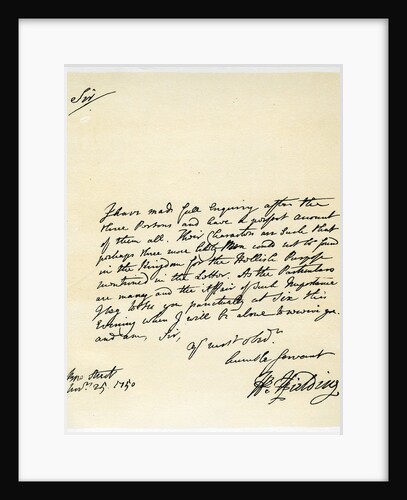 Sir
I have made full Enquiry after the
three Persons and have a perfect account
of them all. Their Characters are such that
perhaps three more likely Men could not be found
in the Kingdom for the Hellish Purpose
mentioned in the Letter. As the Particulars
are many and the Affair of such Importance
I beg to see you punctually at Six this
Evening when I will be alone to receive you
and am, Sir,
Yr most obdt
humble Servant
Hy Fielding
Bow Street
Novr 25 1750